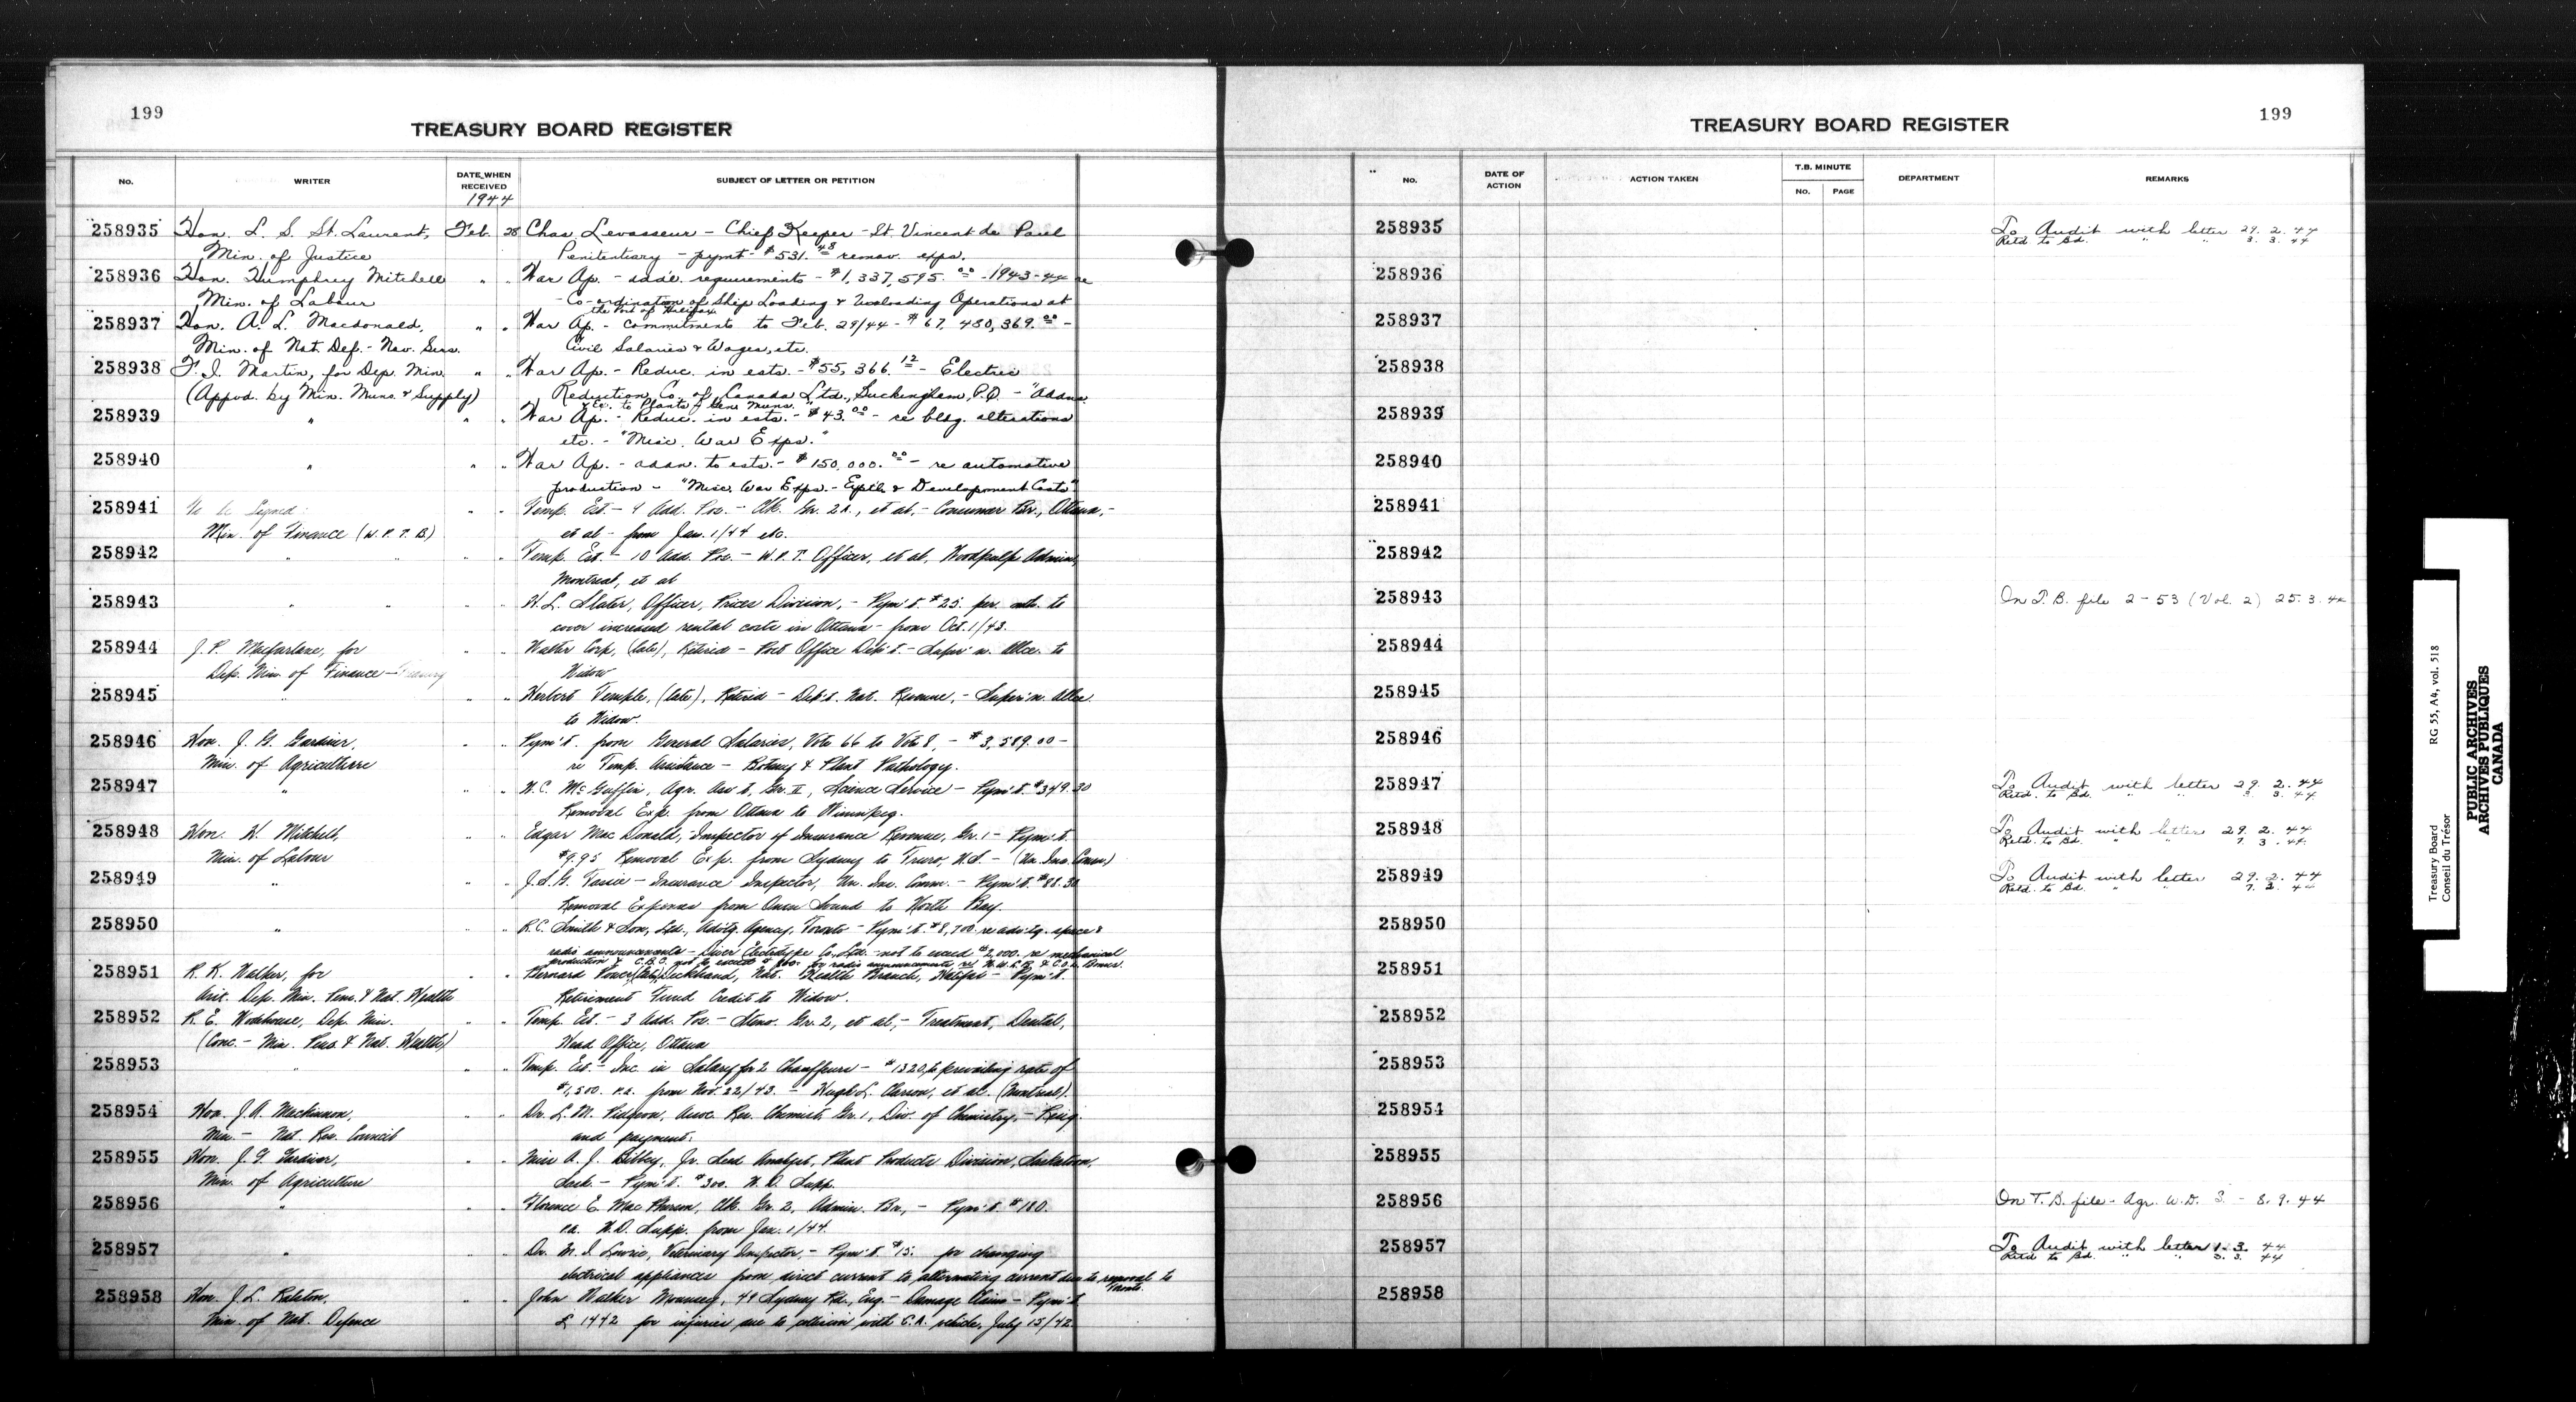 199
TREASURY BOARD REGISTER
No. WRITER DATE WHEN RECEIVED SUBJECT OF LETTER OR PETITION
1944
258935 Hon. L. S. St. Laurent, Feb. 28 Chas. Levasseur - Chief Keeper - St. Vincent de Paul
Min. of Justice Penitentiary - pymt - $531.48 remov. exps.
258936 Hon. Humphrey Mitchell " " War Ap. - add'l. requirements - $1,337,595.00 - 1943-44 re
Min. of Labour - Co-ordination of Ship Loading & Unloading Operations at
the Port of Halifax.
258937 Hon. A. L. Macdonald, " " War Ap. - Commitments to Feb. 29/44 - $67,480,369.00 -
Min. of Nat. Def. - Nav. Serv. Civil Salaries & Wages, etc.
258938 F. I. Martin, for Dep. Min. " " War Ap. - Reduc. in ests. - $55,366.12 - Electric
(Appvd. by Min. Muns. & Supply) Reduction Co. of Canada Ltd., Buckingham, P.Q. - "Addns.
& Ex. to Plants of Gen. Muns."
258939 " " " War Ap. - Reduc. in ests. - $43.00 - re bldg. alterations
etc. - "Misc. War Exps."
258940 " " " War Ap. - addn. to ests. - $150,000.00 - re automotive
production - "Misc. War Exps. - Exptl. & Development Costs"
258941 To be Signed: " " Temp. Est. - 4 Add. Pos. - Clk. Gr. 2A, et al, - Consumer Br., Ottawa, -
Min. of Finance (W.P.T.B.) et al - from Jan. 1/44 etc.
258942 " " " " Temp. Est. - 10 Add. Pos. - W.P.T. Officer, et al, Woodpulp Admin,
Montreal, et al
258943 " " " " W.L. Slater, Officer, Prices Division, - Pym't. $25. per. mth. to
cover increased rental costs in Ottawa - from Oct. 1/43.
258944 J. P. Macfarlane, for " " Walter Corp, (late), Retired - Post Office Dep't. - Super'n. Allce. to
Dep. Min. of Finance - Treasury Widow
258945 " " " Herbert Temple, (late), Retired - Dep't. Nat. Revenue, - Super'n. Allce.
to Widow.
258946 Hon. J. G. Gardiner, " " Pym't. from General Salaries, Vote 66 to Vote 8, - $3,589.00 -
Min. of Agriculture re Temp. Assistance - Botany & Plant Pathology.
258947 " " " W.C. McGuffin, Agr. Ass't. Gr. II, Science Service - Pym't. $349.30
Removal Exp. from Ottawa to Winnipeg.
258948 Hon. H. Mitchell, " " Edgar MacDonald, Inspector of Insurance Revenue, Gr. 1 - Pym't.
Min. of Labour $9.95 Removal Exp. from Sydney to Truro, N.S. - (Un. Ins. Comm.)
258949 " " " J.S.G. - Insurance Inspector, Un. Ins. Comm. - Pym't. $88.30
Removal Expenses from Owen Sound to North Bay.
258950 " " " R.C. Smith & Son, Ltd., Adv'tg. Agency, Toronto - Pym't. $8,700. re adv'tg. space &
radio announcements - Electrotype Co. Ltd. - not to exceed $2,000. re mechanical
production & C.B.C. not to exceed for radio announcements re
258951 R. K. Walker, for " " Bernard Power, (late), Deckhand, Nat. Health Branch, Halifax - Pym't.
Asst. Dep. Min. Pens. & Nat. Health Retirement Fund Credit to Widow.
258952 R. E. Wodehouse, Dep. Min. " " Temp. Est. - 3 Add. Pos. - Steno. Gr. 2, et al, - Treatment, Dental,
(Conc. - Min. Pens. & Nat. Health) Head Office, Ottawa
258953 " " " Temp. Est. - Inc. in Salary for 2 Chauffeurs - $1320, to prevailing rate of
$1,500. p.a. from Nov. 22/43. - Hugh L. Carson, et al. (Montreal).
258954 Hon. J. A. MacKinnon, " " Dr. L. M. Pidgeon, Assoc. Res. Chemist, Gr. 1, Div. of Chemistry, - Resig.
Min. - Nat. Res. Council and payment.
258955 Hon. J. G. Gardiner, " " Miss A. J. Bibbey, Jr. Seed Analyst, Plant Products Division, Saskatoon,
Min. of Agriculture Sask. - Pym't. $300. W.D. Supp.
258956 " " " Florence E. MacPherson, Clk. Gr. 2, Admin. Br., - Pym't. $180.
p.a. W.D. Supp. from Jan. 1/44.
258957 " " " Dr. M. I. Lowrie, Veterinary Inspector, - Pym't. $15. for changing
electrical appliances from direct current to alternating current due to removal to
258958 Hon. J. L. Ralston, " " John Walker Mouncey, 49 Sydney Rd., Eng. - Damage Claim - Pym't.
Min. of Nat. Defence £1442 for injuries due to collision with C.A. vehicle, July 15/42.
199
TREASURY BOARD REGISTER
No. DATE OF ACTION ACTION TAKEN T.B. MINUTE No. PAGE DEPARTMENT REMARKS
258935 To Audit with letter 29. 2. 44
Retd. to Bd. " " 3. 3. 44
258936
258937
258938
258939
258940
258941
258942
258943 On T. B. file 2-53 (Vol. 2) 25.3.44
258944
258945
258946
258947 To Audit with letter 29. 2. 44
Retd. to Bd. " " 3. 3. 44
258948 To Audit with letter 29. 2. 44
Retd. to Bd. " " 7. 3. 44
258949 To Audit with letter 29. 2. 44
Retd. to Bd. " " 7. 3. 44
258950
258951
258952
258953
258954
258955
258956 On T. B. file - Agr. W.D. 3 - 8. 9. 44
258957 To Audit with letter 1. 3. 44
Retd to Bd. " " 3. 3. 44
258958
Treasury Board
Conseil du Trésor
RG 55, A4, vol. 518
PUBLIC ARCHIVES
ARCHIVES PUBLIQUES
CANADA